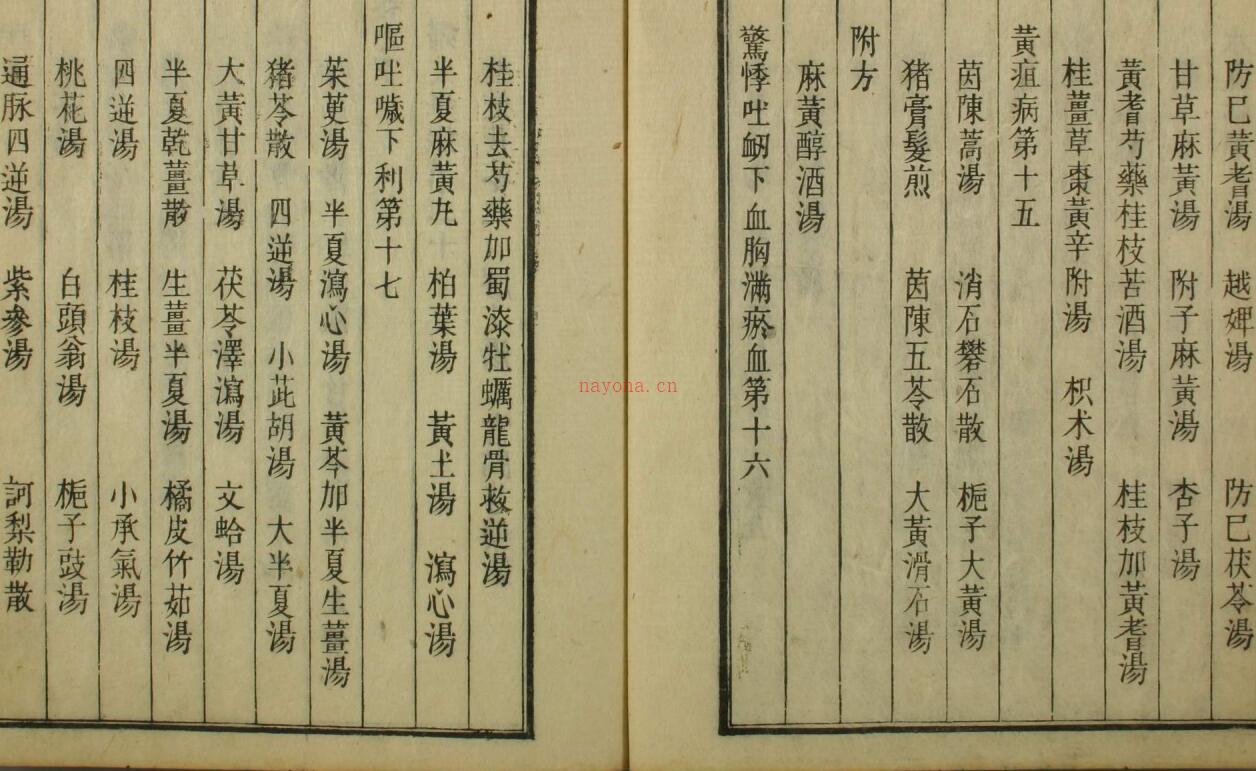 防已黃耆湯 越婢湯 防已茯苓湯
甘草麻黃湯 附子麻黃湯 杏子湯
黃耆芍藥桂枝苦酒湯 桂枝加黃耆湯
桂薑草棗黃辛附湯 枳术湯
黃疸病第十五
茵陳蒿湯 消石礬石散 梔子大黃湯
猪膏髮煎 茵陳五苓散 大黃滑石湯
附方
麻黃醇酒湯
驚悸吐衂下血胸滿瘀血第十六
桂枝去芍藥加蜀漆牡蠣龍骨救逆湯
半夏麻黃丸 柏葉湯 黃土湯 瀉心湯
嘔吐噦下利第十七
茱萸湯 半夏瀉心湯 黃芩加半夏生薑湯
猪苓散 四逆湯 小茈胡湯 大半夏湯
大黃甘草湯 茯苓澤瀉湯 文蛤湯
半夏乾薑散 生薑半夏湯 橘皮竹茹湯
四逆湯 桂枝湯 小承氣湯
桃花湯 白頭翁湯 梔子豉湯
通脉四逆湯 紫參湯 訶梨勒散
nayona.cn